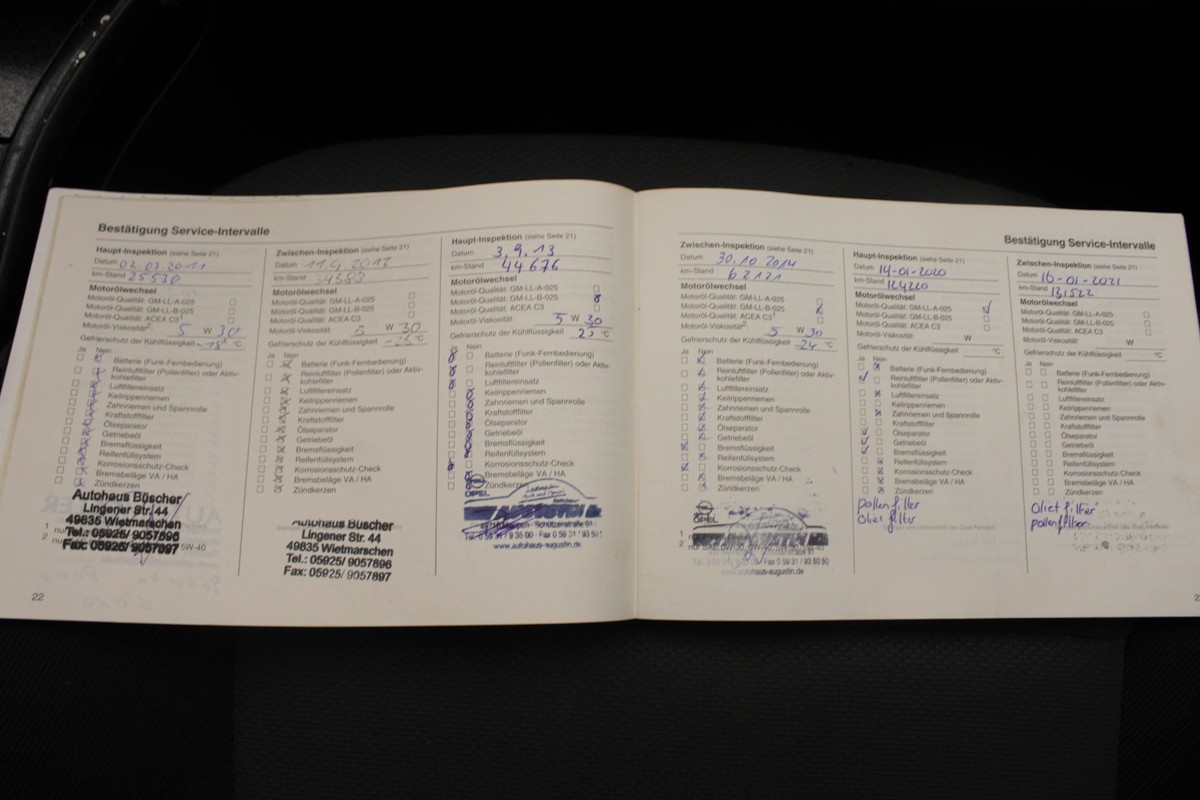 Bestätigung Service-Intervalle
Haupt-Inspektion (siehe Seite 21)
Datum 02.03.2011
km-Stand 25530
Motorölwechsel
Motoröl-Qualität: GM-LL-A-025
Motoröl-Qualität: GM-LL-B-025
Motoröl-Qualität: ACEA C3¹
Motoröl-Viskosität² 5 W 30
Gefrierschutz der Kühlflüssigkeit -18° °C
Ja Nein
Batterie (Funk-Fernbedienung)
Reinluftfilter (Pollenfilter) oder Aktiv-
kohlefilter
Luftfiltereinsatz
Keilrippenriemen
Zahnriemen und Spannrolle
Kraftstofffilter
Ölseparator
Getriebeöl
Bremsflüssigkeit
Reifenfüllsystem
Korrosionsschutz-Check
Bremsbeläge VA / HA
Zündkerzen
Autohaus Büscher
Lingener Str. 44
49835 Wietmarschen
Tel.: 05925/ 9057896
Fax: 05925/ 9057897
22
Zwischen-Inspektion (siehe Seite 21)
Datum
km-Stand
Motorölwechsel
Motoröl-Qualität: GM-LL-A-025
Motoröl-Qualität: GM-LL-B-025
Motoröl-Qualität: ACEA C3
Motoröl-Viskosität 5 W 30
Gefrierschutz der Kühlflüssigkeit °C
Ja Nein
Batterie (Funk-Fernbedienung)
Reinluftfilter (Pollenfilter) oder Aktiv-
kohlefilter
Luftfiltereinsatz
Keilrippenriemen
Zahnriemen und Spannrolle
Kraftstofffilter
Ölseparator
Getriebeöl
Bremsflüssigkeit
Reifenfüllsystem
Korrosionsschutz-Check
Bremsbeläge VA / HA
Zündkerzen
Autohaus Büscher
Lingener Str. 44
49835 Wietmarschen
Tel.: 05925/ 9057896
Fax: 05925/ 9057897
Haupt-Inspektion (siehe Seite 21)
Datum 3.9.13
km-Stand 44676
Motorölwechsel
Motoröl-Qualität: GM-LL-A-025
Motoröl-Qualität: GM-LL-B-025
Motoröl-Qualität: ACEA C3
Motoröl-Viskosität 5 W 30
Gefrierschutz der Kühlflüssigkeit °C
Ja Nein
Batterie (Funk-Fernbedienung)
Reinluftfilter (Pollenfilter) oder Aktiv-
kohlefilter
Luftfiltereinsatz
Keilrippenriemen
Zahnriemen und Spannrolle
Kraftstofffilter
Ölseparator
Getriebeöl
Bremsflüssigkeit
Reifenfüllsystem
Korrosionsschutz-Check
Bremsbeläge VA / HA
Zündkerzen
OPEL
AUGUSTIN
www.autohaus-augustin.de
Bestätigung Service-Intervalle
Zwischen-Inspektion (siehe Seite 21)
Datum 30.10.2014
km-Stand 62121
Motorölwechsel
Motoröl-Qualität: GM-LL-A-025
Motoröl-Qualität: GM-LL-B-025
Motoröl-Qualität: ACEA C3¹
Motoröl-Viskosität² 5 W 30
Gefrierschutz der Kühlflüssigkeit -24 °C
Ja Nein
Batterie (Funk-Fernbedienung)
Reinluftfilter (Pollenfilter) oder Aktiv-
kohlefilter
Luftfiltereinsatz
Keilrippenriemen
Zahnriemen und Spannrolle
Kraftstofffilter
Ölseparator
Getriebeöl
Bremsflüssigkeit
Reifenfüllsystem
Korrosionsschutz-Check
Bremsbeläge VA / HA
Zündkerzen
OPEL
www.autohaus-augustin.de
Haupt-Inspektion (siehe Seite 21)
Datum 14-01-2020
km-Stand 124220
Motorölwechsel
Motoröl-Qualität: GM-LL-A-025
Motoröl-Qualität: GM-LL-B-025
Motoröl-Qualität: ACEA C3
Motoröl-Viskosität W
Gefrierschutz der Kühlflüssigkeit °C
Ja Nein
Batterie (Funk-Fernbedienung)
Reinluftfilter (Pollenfilter) oder Aktiv-
kohlefilter
Luftfiltereinsatz
Keilrippenriemen
Zahnriemen und Spannrolle
Kraftstofffilter
Ölseparator
Getriebeöl
Bremsflüssigkeit
Reifenfüllsystem
Korrosionsschutz-Check
Bremsbeläge VA / HA
Zündkerzen
pollenfilter
Oliet filter
Zwischen-Inspektion (siehe Seite 21)
Datum 16-01-2021
km-Stand 131522
Motorölwechsel
Motoröl-Qualität: GM-LL-A-025
Motoröl-Qualität: GM-LL-B-025
Motoröl-Qualität: ACEA C3
Motoröl-Viskosität W
Gefrierschutz der Kühlflüssigkeit °C
Ja Nein
Batterie (Funk-Fernbedienung)
Reinluftfilter (Pollenfilter) oder Aktiv-
kohlefilter
Luftfiltereinsatz
Keilrippenriemen
Zahnriemen und Spannrolle
Kraftstofffilter
Ölseparator
Getriebeöl
Bremsflüssigkeit
Reifenfüllsystem
Korrosionsschutz-Check
Bremsbeläge VA / HA
Zündkerzen
Oliet filter
pollenfilter